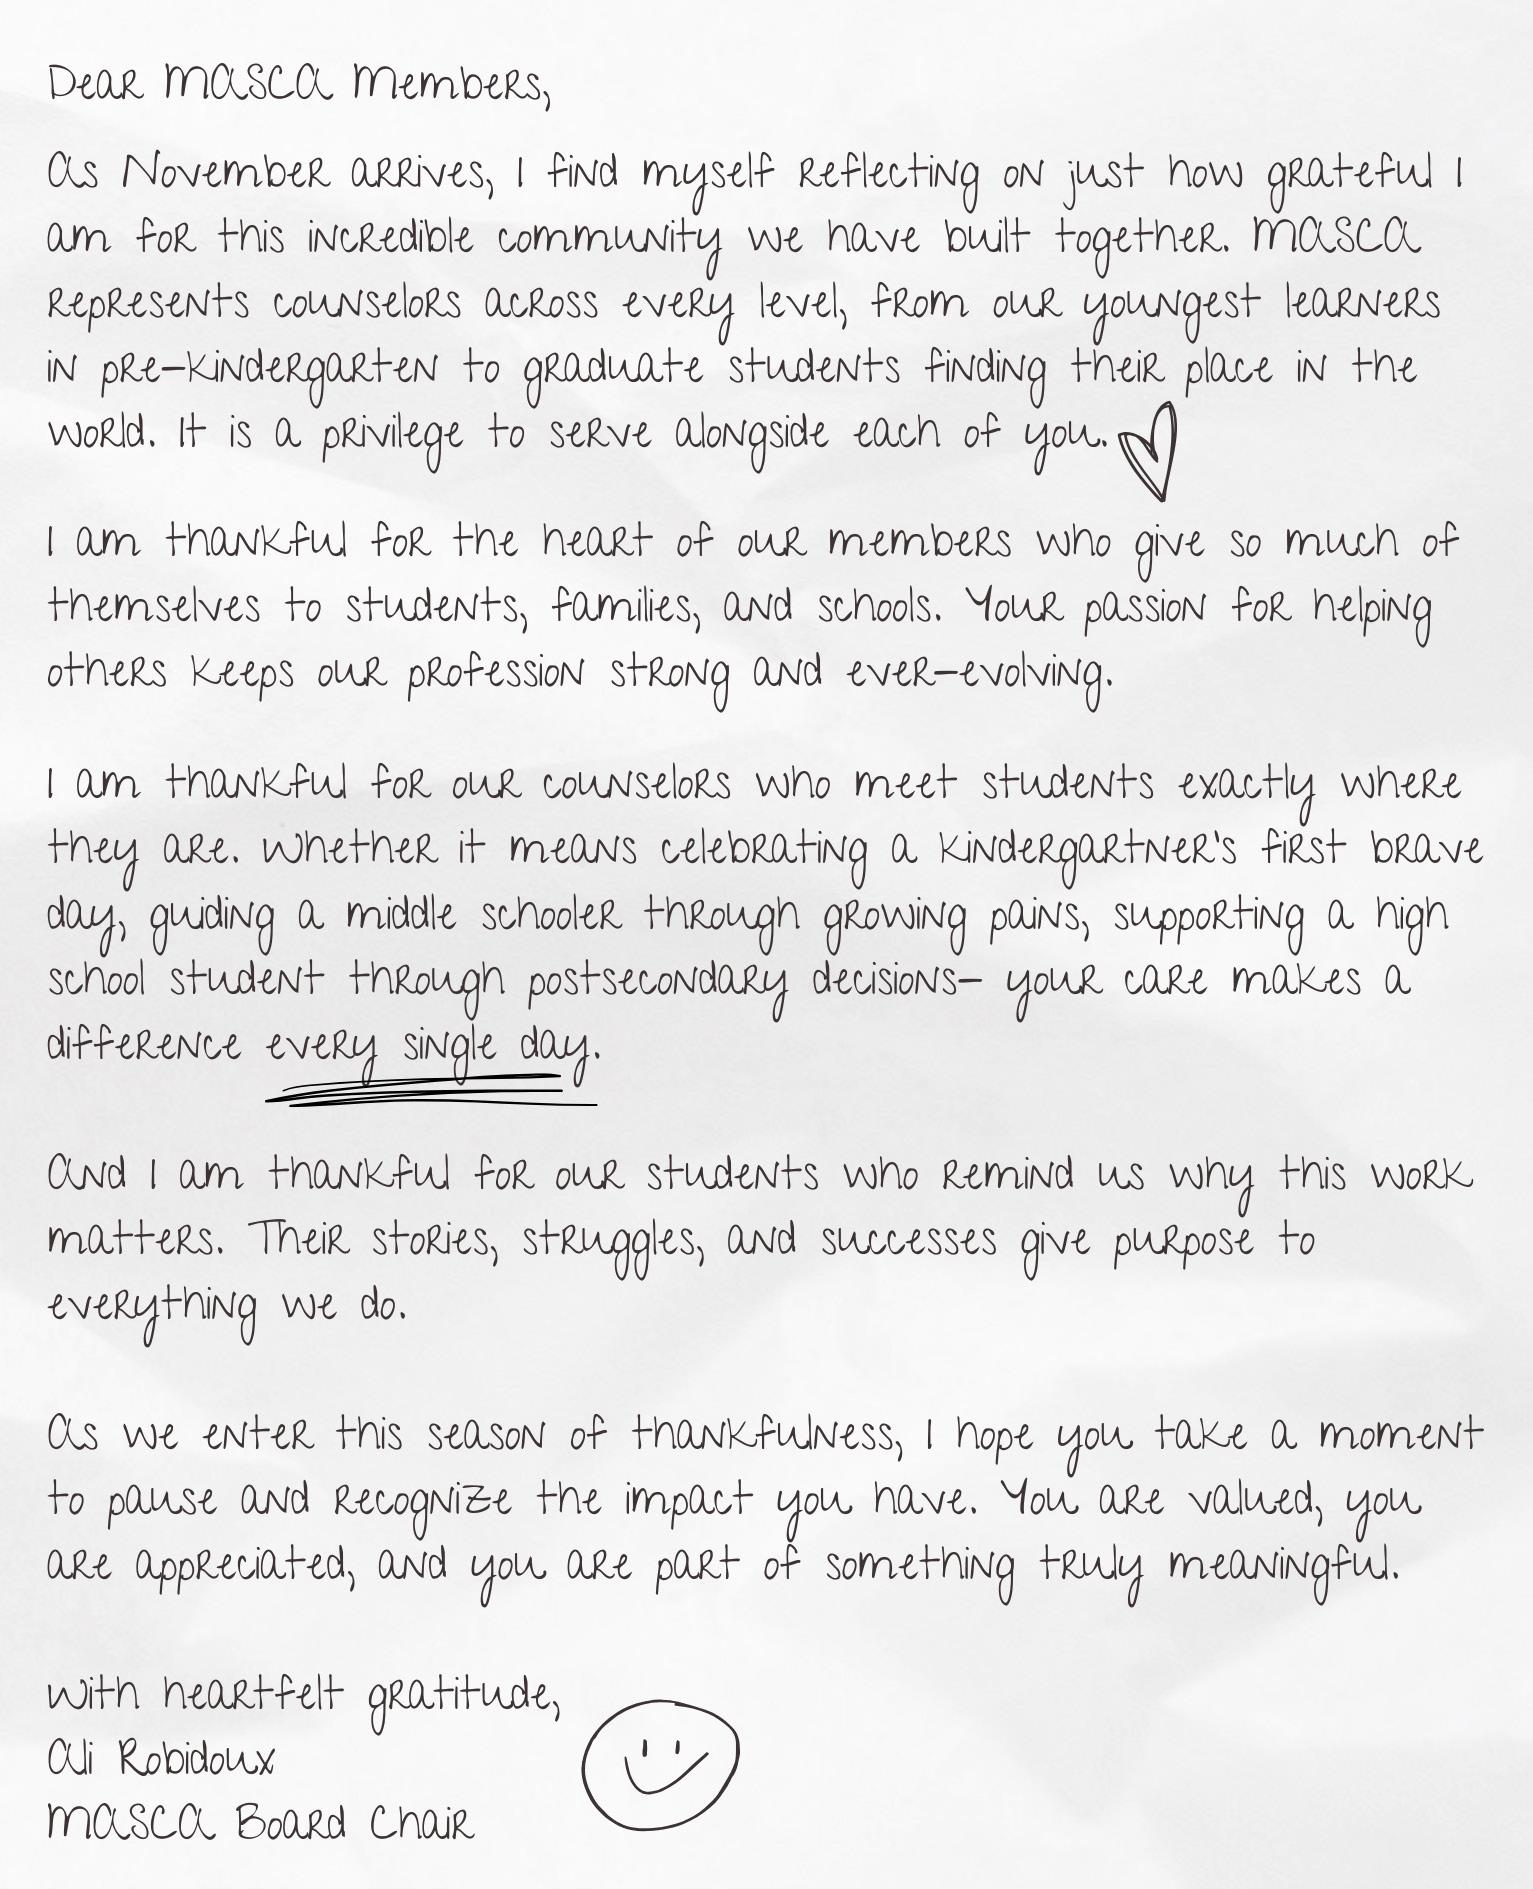 Dear MASCA Members,
As November arrives, I find myself reflecting on just how grateful I
am for this incredible community we have built together. MASCA
represents counselors across every level, from our youngest learners
in pre-kindergarten to graduate students finding their place in the
world. It is a privilege to serve alongside each of you.
I am thankful for the heart of our members who give so much of
themselves to students, families, and schools. Your passion for helping
others keeps our profession strong and ever-evolving.
I am thankful for our counselors who meet students exactly where
they are. Whether it means celebrating a kindergartner's first brave
day, guiding a middle schooler through growing pains, supporting a high
school student through postsecondary decisions- your care makes a
difference every single day.
And I am thankful for our students who remind us why this work
matters. Their stories, struggles, and successes give purpose to
everything we do.
As we enter this season of thankfulness, I hope you take a moment
to pause and recognize the impact you have. You are valued, you
are appreciated, and you are part of something truly meaningful.
With heartfelt gratitude,
Ali Robidoux
MASCA Board Chair